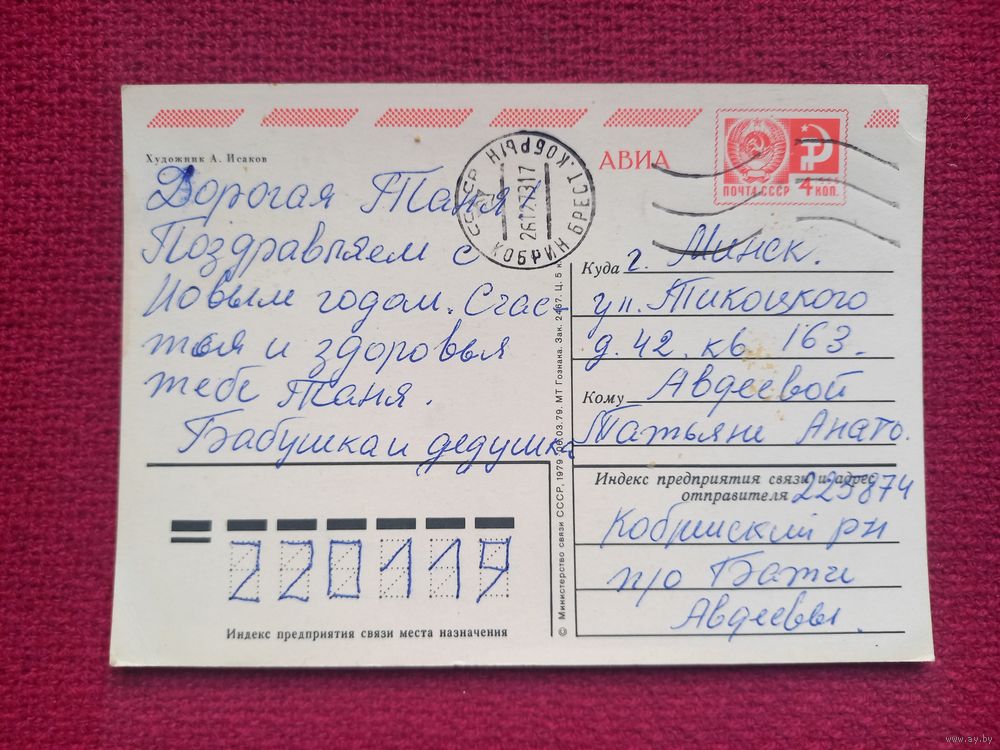 Художник А. Исаков
АВИА
ПОЧТА СССР 4 КОП.
СССР КОБРЫН
26127917
КОБРИН БРЕСТ.
Дорогая Таня!
Поздравляем с
Новым годом. Счас-
тья и здоровья
тебе Таня.
Бабушка и дедушка
Куда г. Минск.
ул. Тикоцкого
д. 42. кв 163.
Кому Авдеевой
Татьяне Анато.
Индекс предприятия связи и адрес
отправителя 225874
Кобринский рн
п/о Бажи
Авдеевы.
220119
Индекс предприятия связи места назначения
© Министерство связи СССР, 1979. 06.03.79. МТ Гознака. Зак. 2467. Ц. 5 к.
www.ay.by